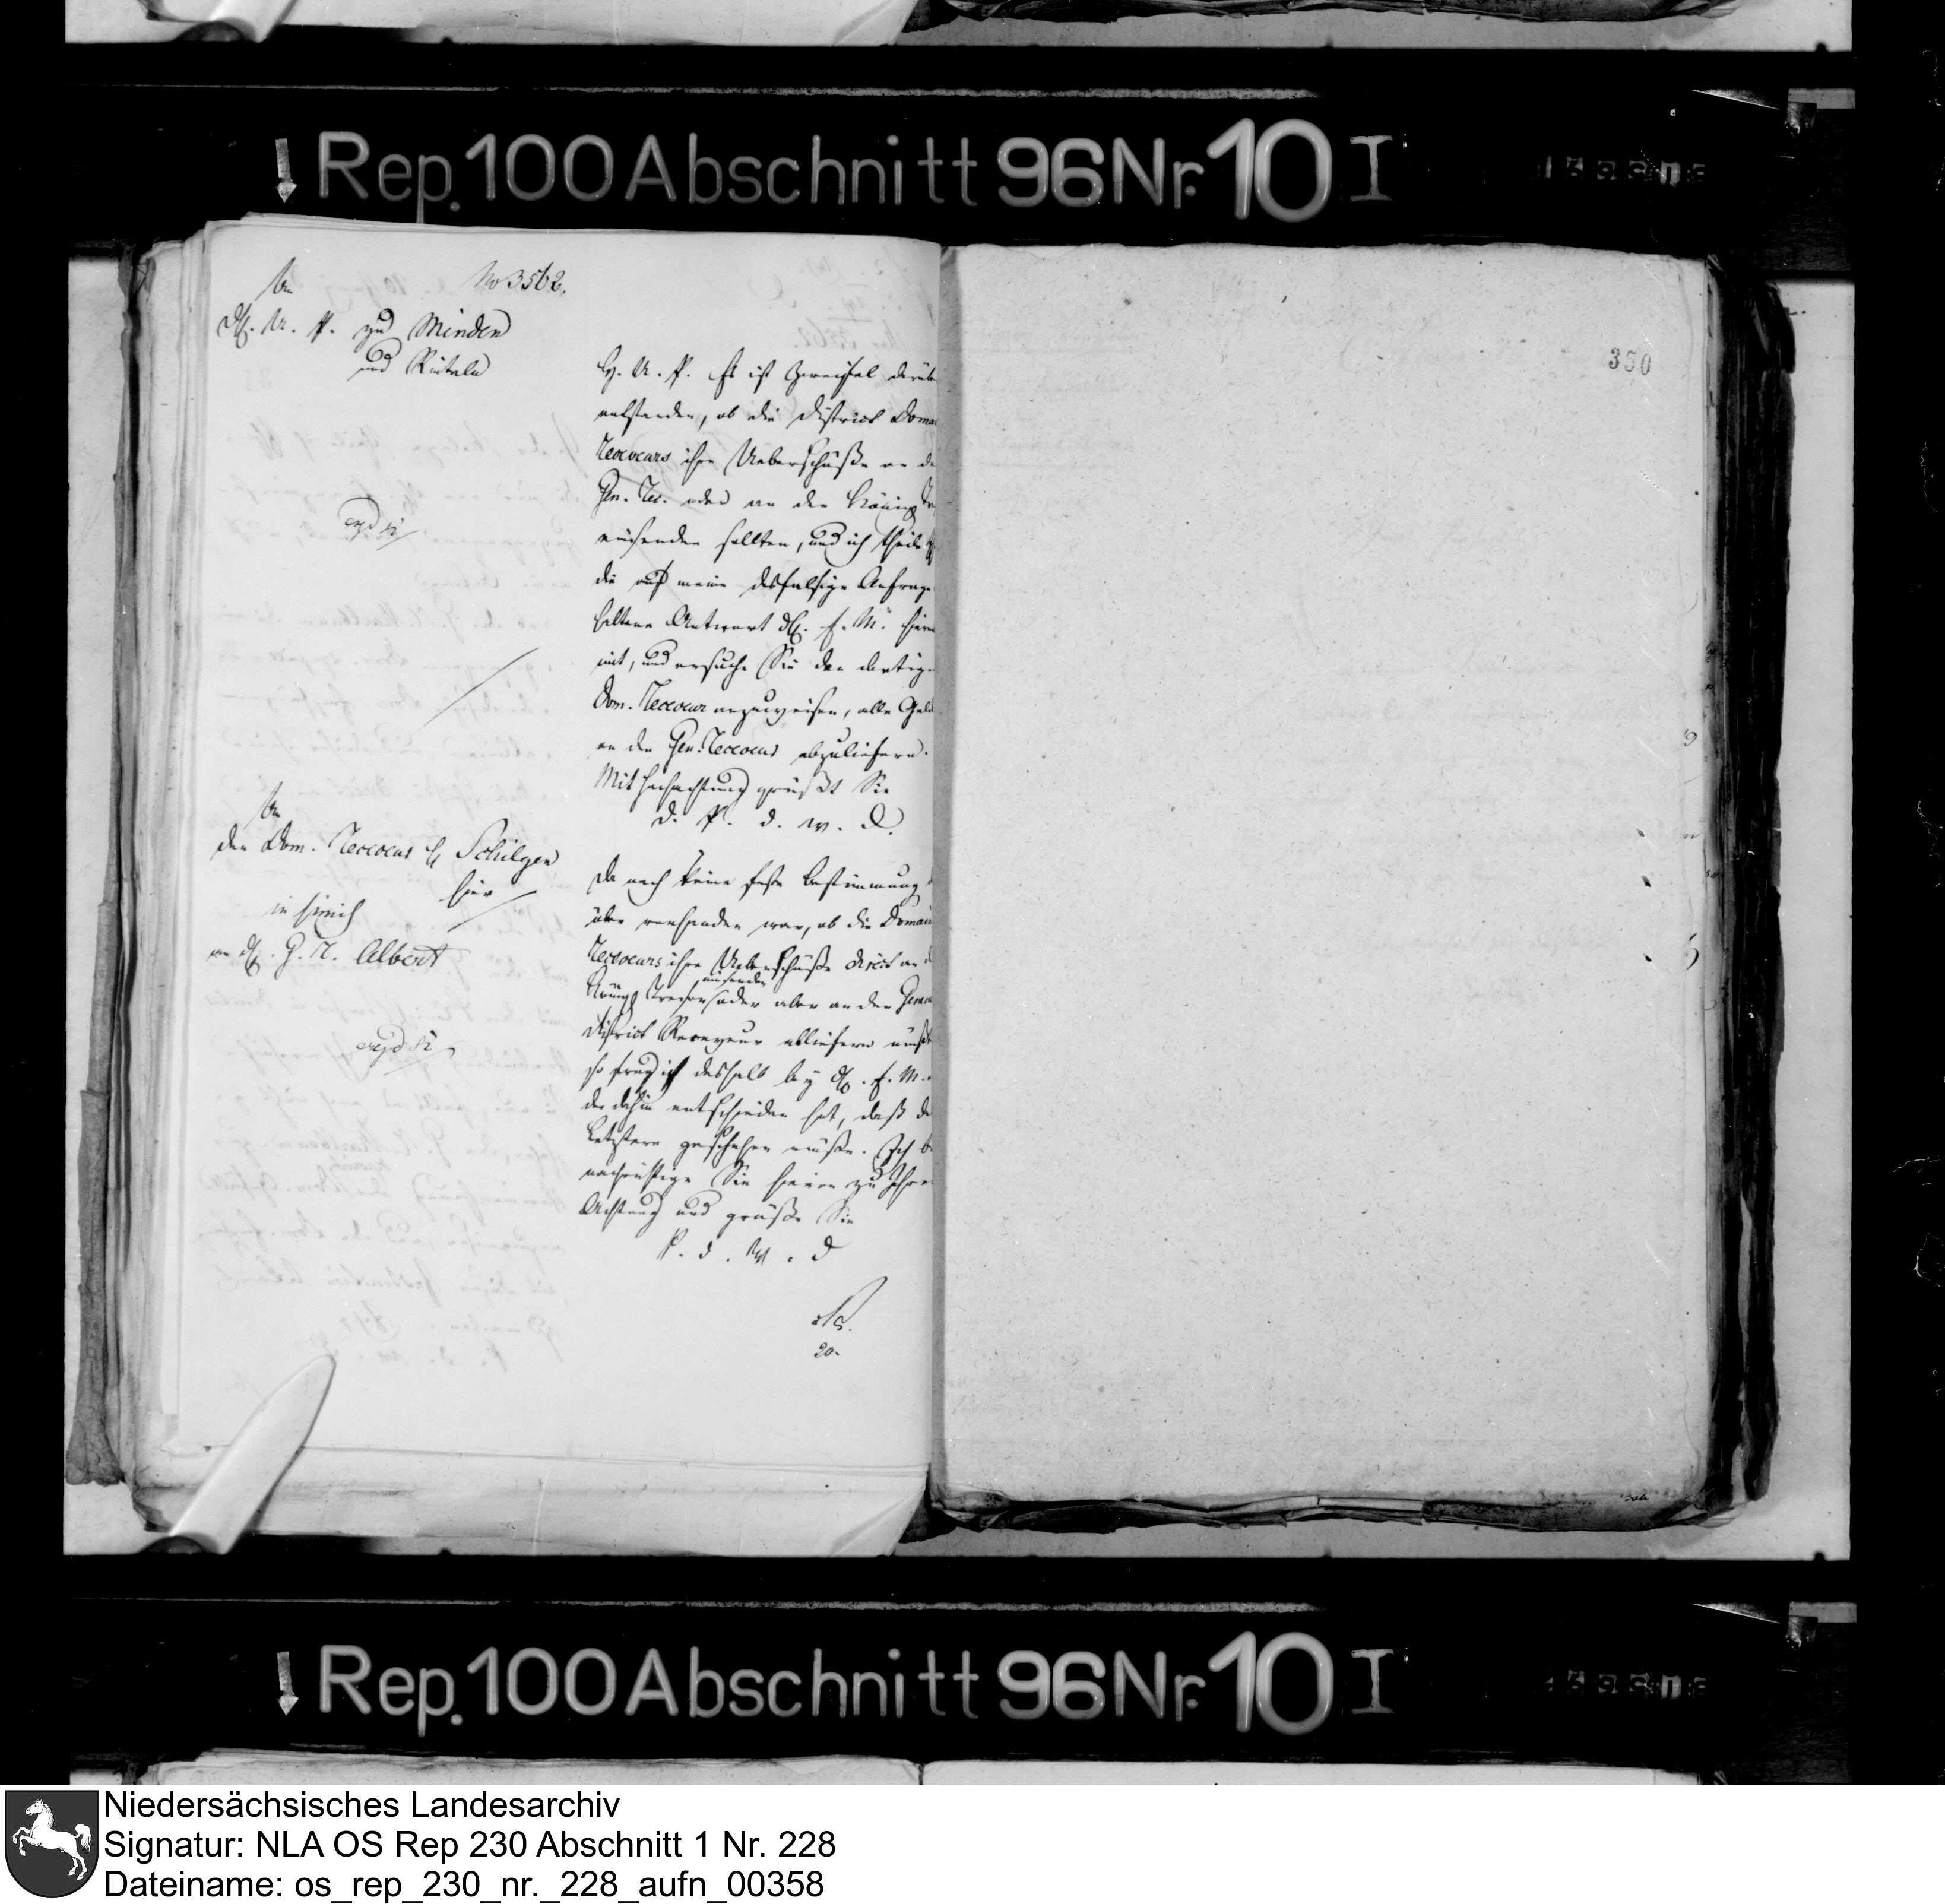 Rep. 100 Abschnitt 96 Nr. 10 I
No 3562.
An
H. U. P. zu Minden
und Rinteln
H. U. P. Es ist Zweifel darüb
entstanden, ob die District Doma
Receveurs ihre Ueberschüße an de
Gen. Rec. oder an den Königl
einsenden sollten, und ich theile
die auf meine desfalsige Anfrage
haltene Antwort H. F. M. hier
mit, und ersuche Sie den dortige
Dom. Receveur anzuweisen, alle Geld
an den Gen. Receveur abzuliefern.
Mit Hochachtung grüßt Sie
D. P. d. W. D.
An
den Dom. Receveur H Schilgen
hier
in simili
an H. G. R. Albert
Da noch keine feste Bestimmung
über vorhanden war, ob die Domain
Receveurs ihre Ueberschüße direct an d
einsenden
Königl Tresor oder aber an den Genera
District Receveur abliefern müßt
so frug ich deshalb bey H. F. M.
der dahin entschieden hat, daß de
Letztere geschehen müße. Ich be
nachrichtige Sie hievon zu Ihre
Achtung und grüße Sie
P. d. W. D
20.
350
Rep. 100 Abschnitt 96 Nr. 10 I
Niedersächsisches Landesarchiv
Signatur: NLA OS Rep 230 Abschnitt 1 Nr. 228
Dateiname: os_rep_230_nr._228_aufn_00358